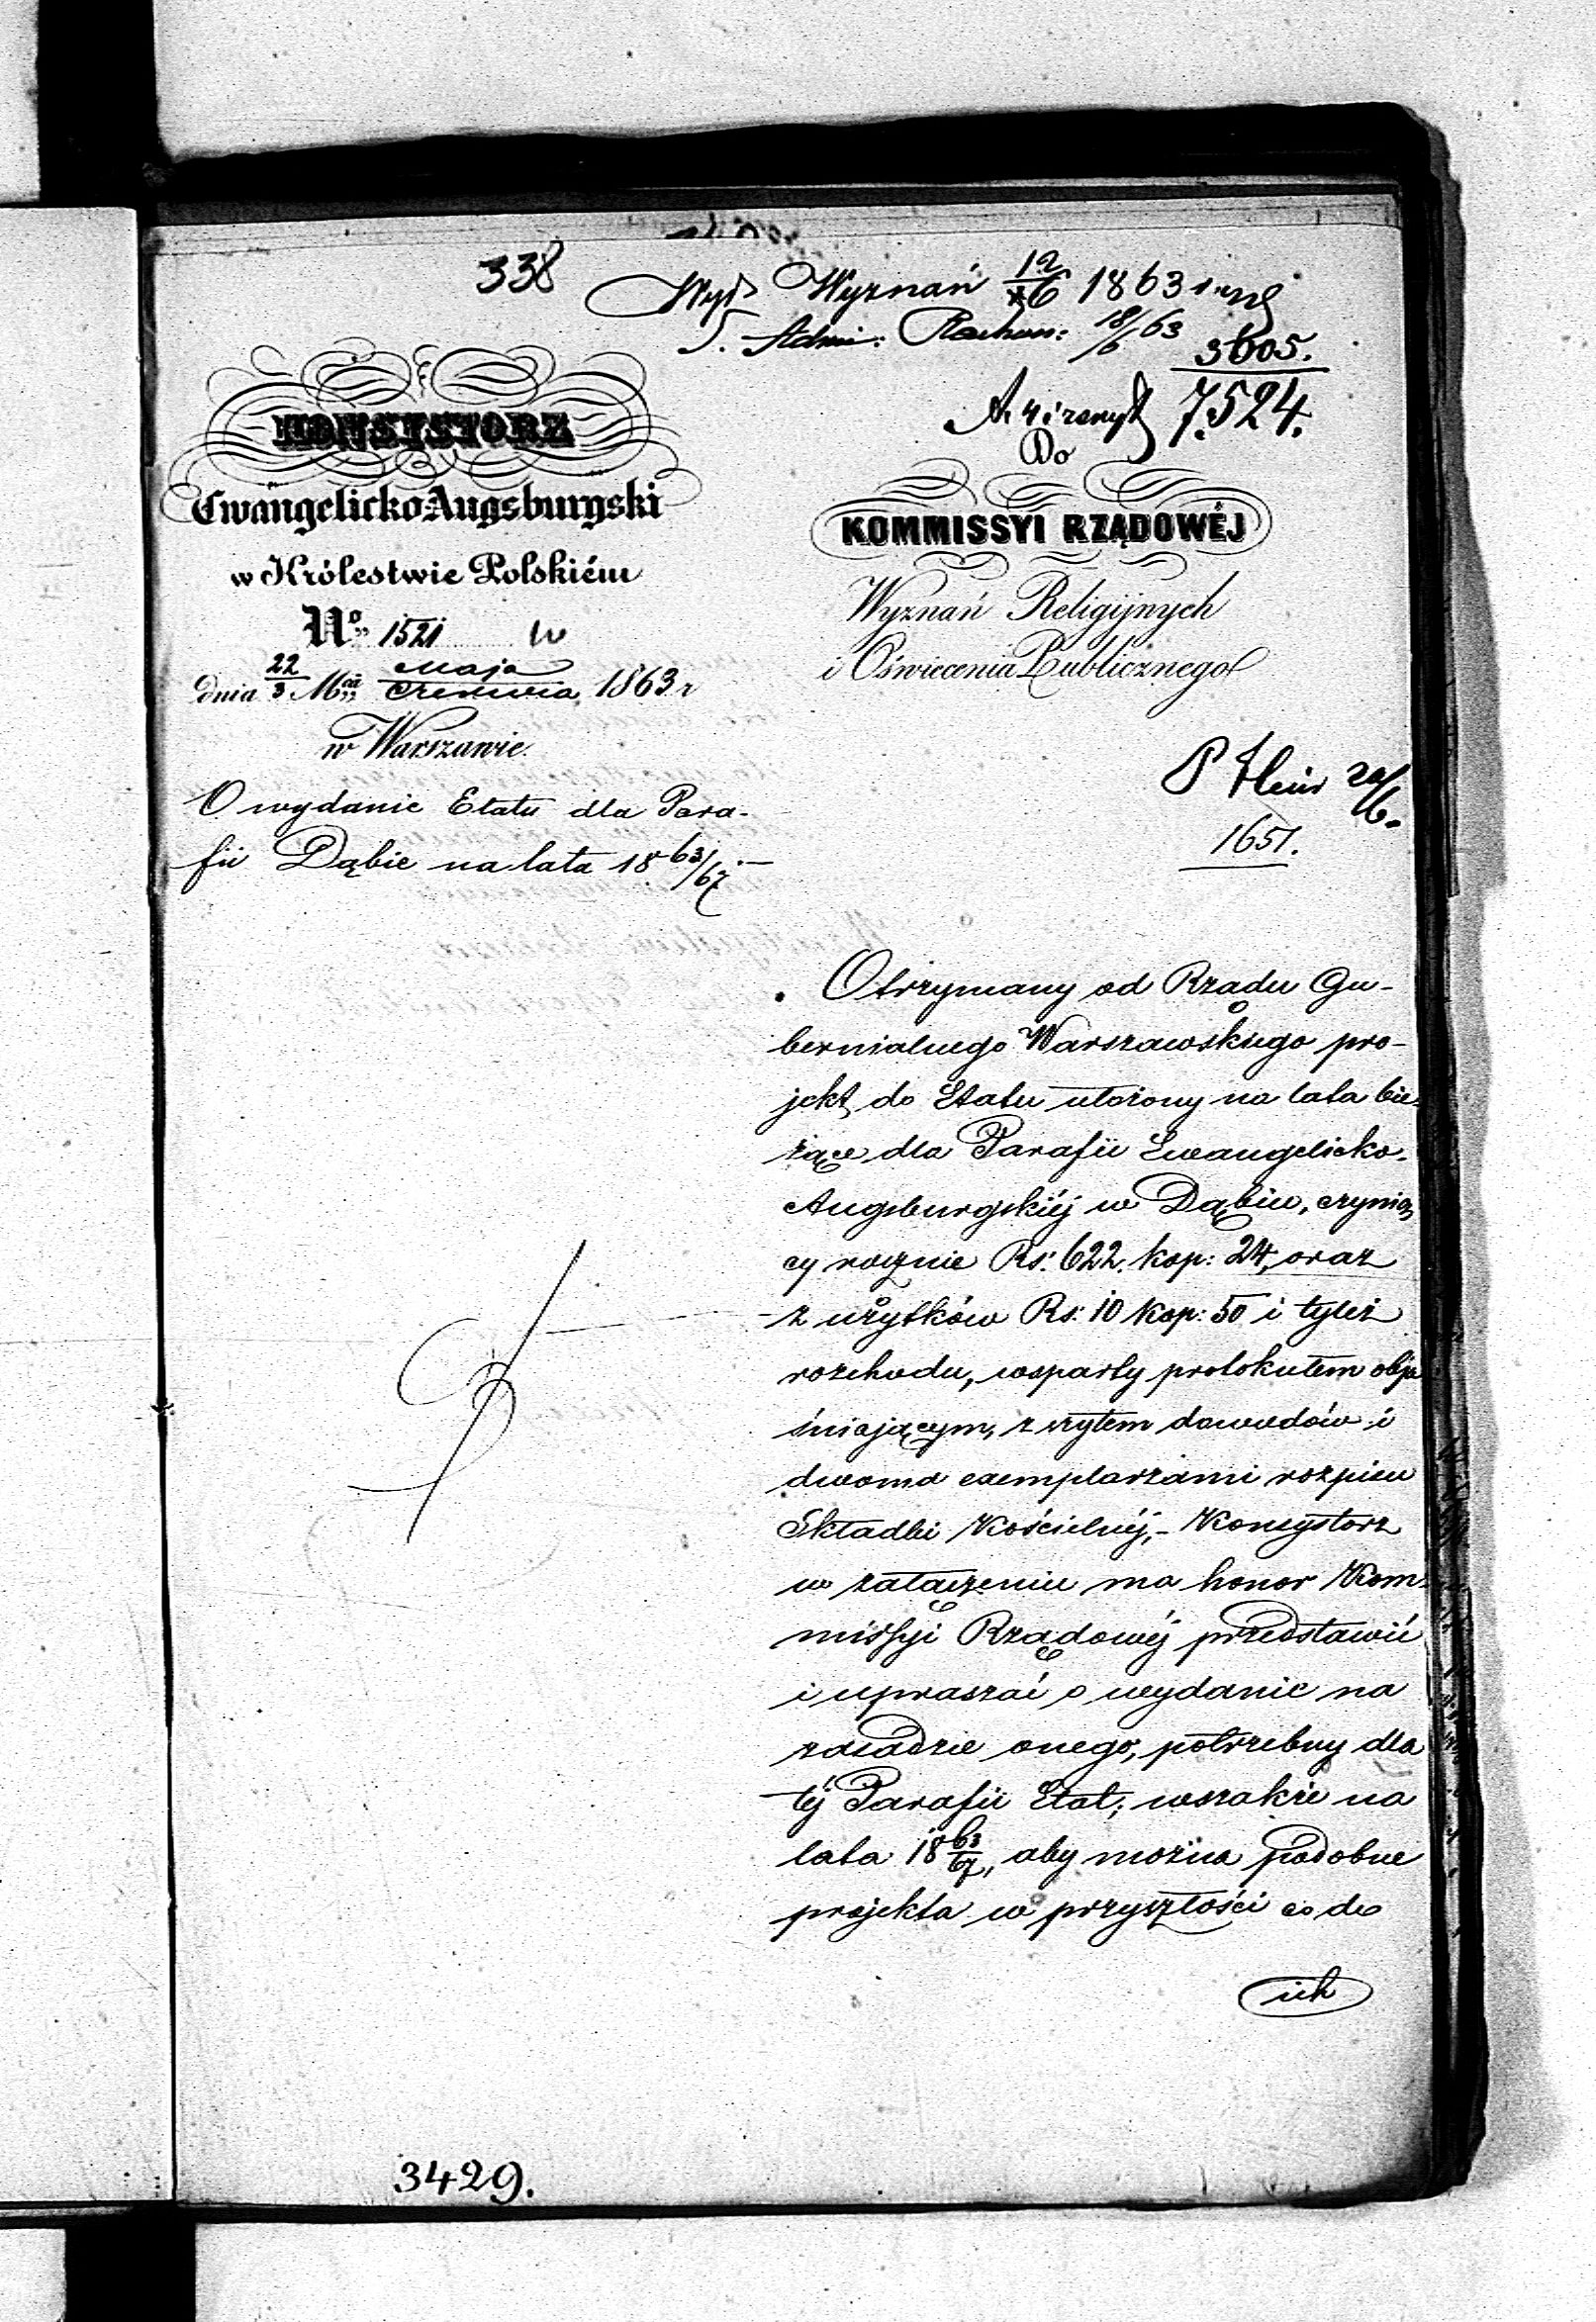 338
Wydz Wyznań 12/6 1863
S. Admi: Rachun: 18/6 63
3605.
7524.
KONSYSTORZ
Ewangelicko-Augsburgski
w Królestwie Polskiém
No 1521 w
dnia 22/3 Mca Maja/Czerwca 1863 r
w Warszawie.
O wydanie Etatu dla Para-
fii Dąbie na lata 18 63/67.—
Do
KOMMISSYI RZĄDOWÉJ
Wyznań Religijnych
i Oświecenia Publicznego
P 20/6.
1651.
Otrzymany od Rządu Gu-
bernialnego Warszawskiego pro-
jekt do Etatu ułożony na lata bie-
żące dla Parafii Ewangelicko-
Augsburgskiéj w Dąbiu, czynią
cy rocznie Rs: 622. kop: 24, oraz
z użytków Rs: 10 kop: 50 i tyleż
rozchodu, wsparty protokułem obja
śniającym, zszytem dowodów i
dwoma exemplarzami rozpisu
Składki Kościelnéj,- Konsystorz
w załączeniu ma honor Kom-
missyi Rządowéj przedstawić
i upraszać o wydanie na
zasadzie onego, potrzebny dla
téj Parafii Etat; wszakże na
lata 18 63/67, aby można podobne
projekta w przyszłości co do
ich
3429.